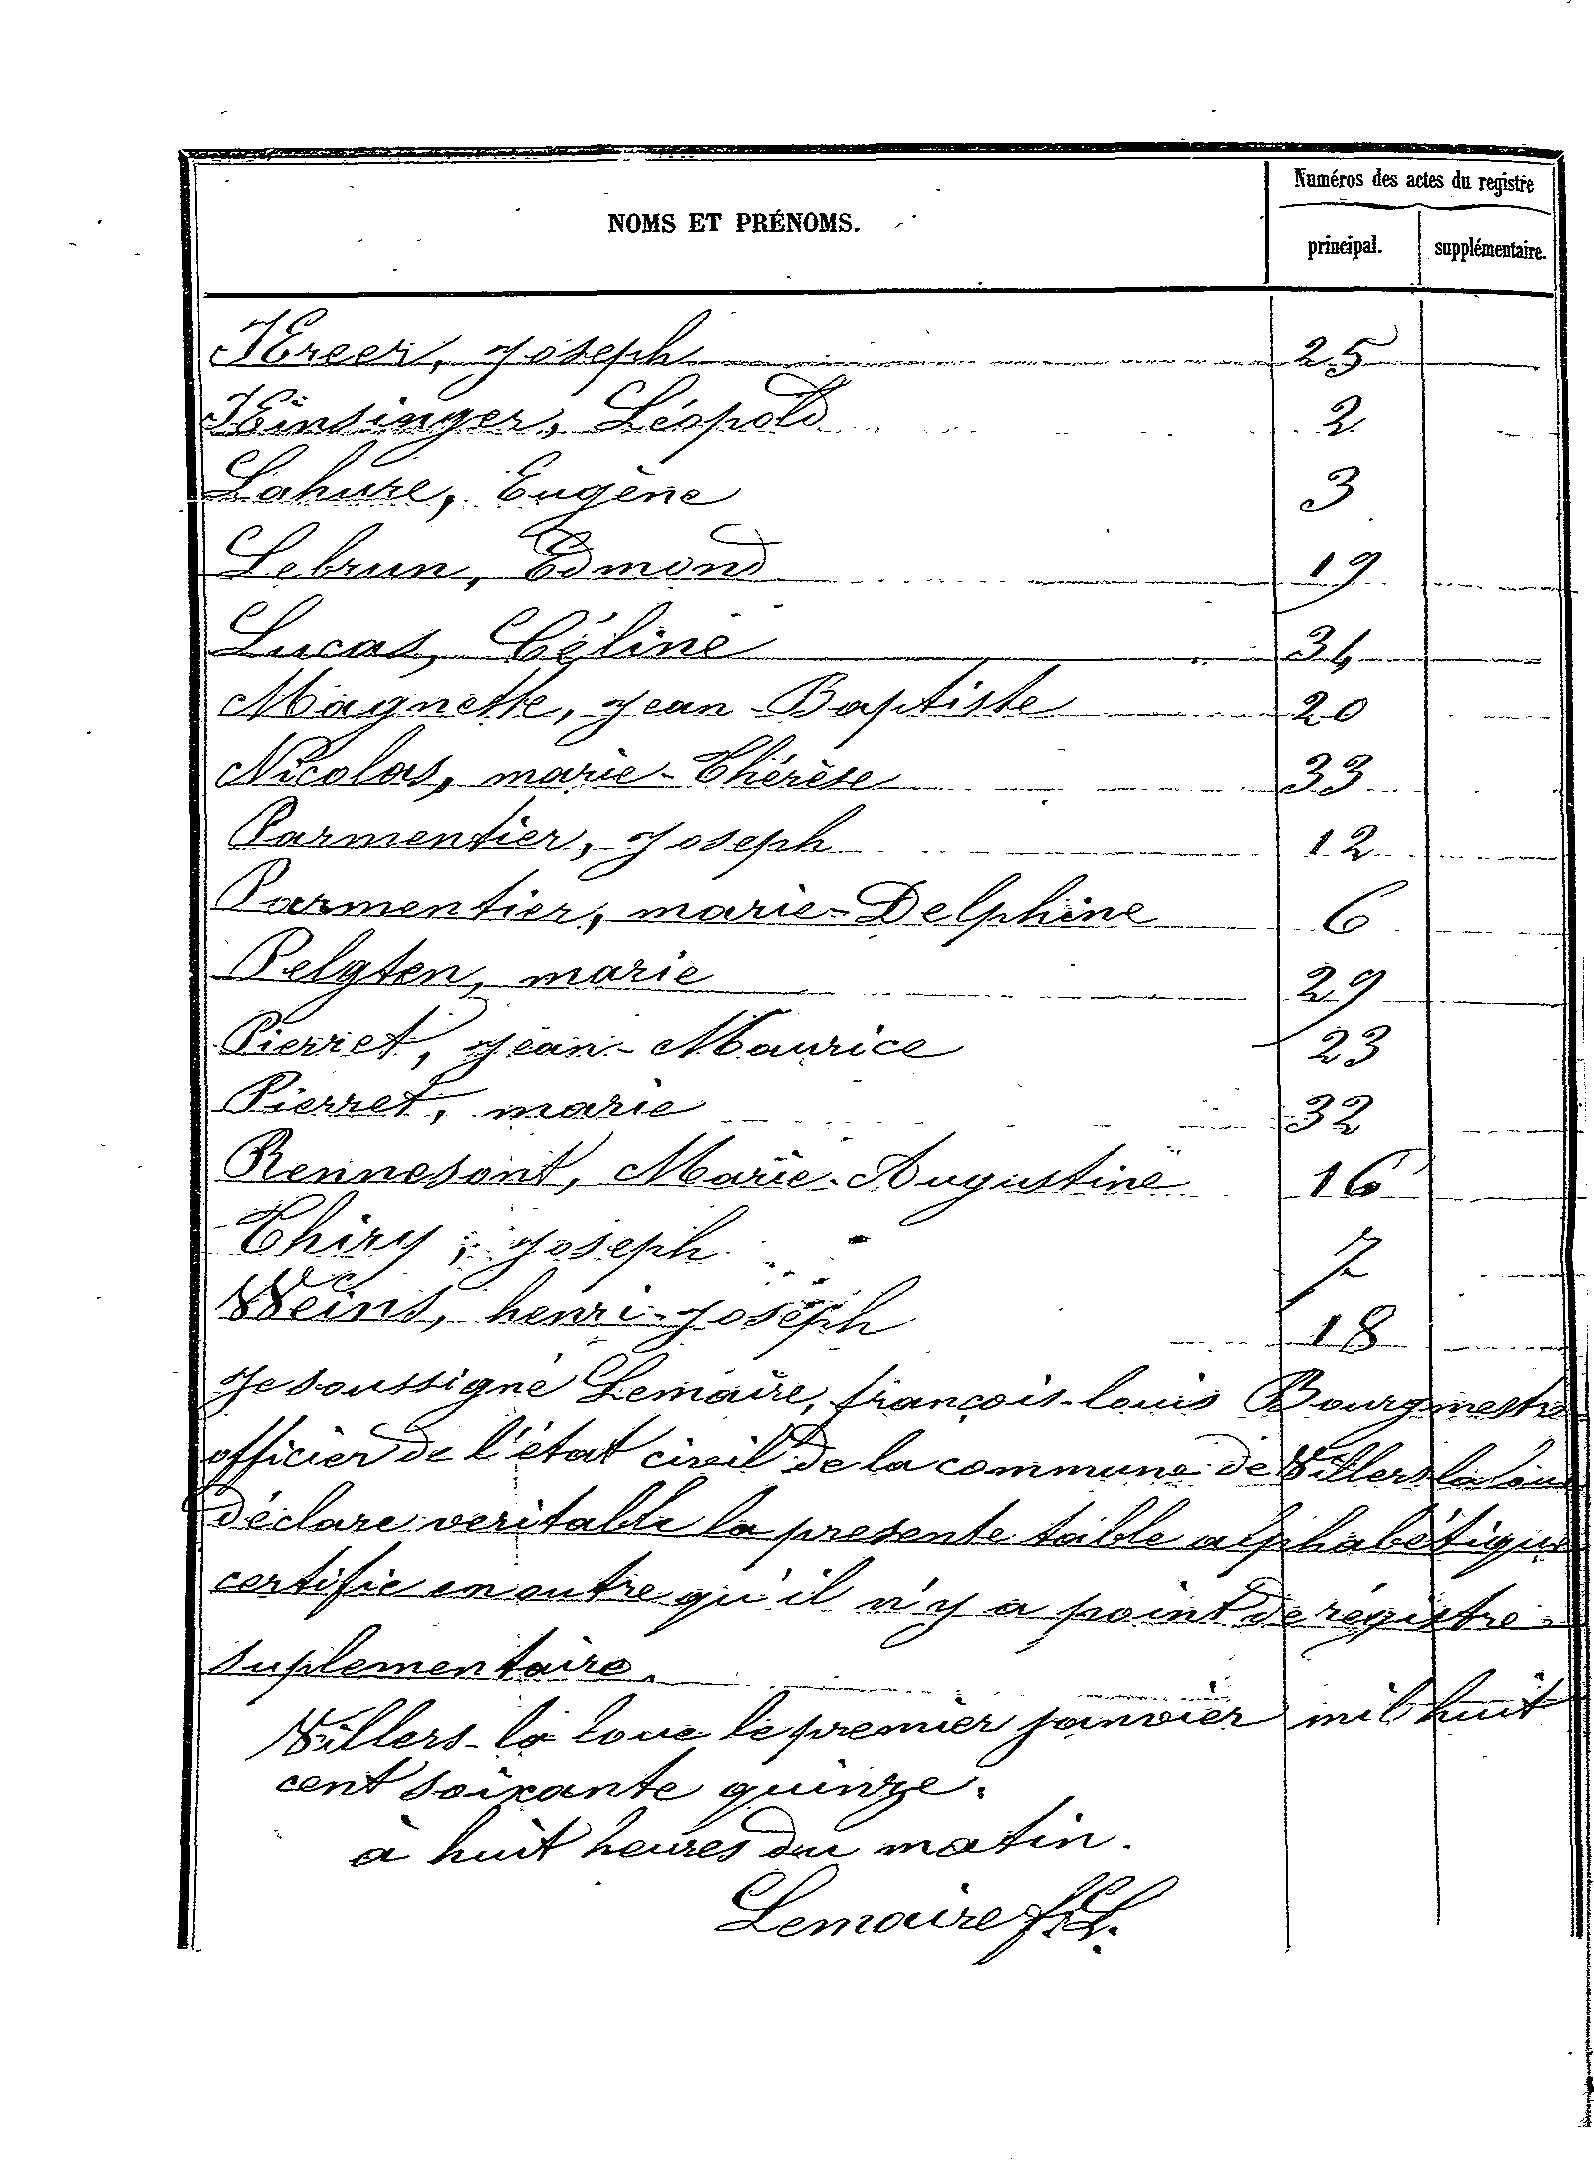 NOMS ET PRÉNOMS.
Numéros des actes du registre
principal. supplémentaire.
Kreer, Joseph 25
Kinsinger, Léopold 2
Lahure, Eugène 3
Lebrun, Edmond 19
Lucas, Céline 34
Magnette, Jean-Baptiste 20
Nicolas, marie-Thérèse 33
Parmentier, Joseph 12
Parmentier, marie-Delphine 6
Pelgten, marie 29
Pierret, Jean-Maurice 23
Pierret, marie 32
Rennesont, Marie-Augustine 16
Thiry, Joseph 7
Weins, henri-Joseph 18
Je soussigné Lemaire, françois-louis Bourgmestre
officier de l'état civil de la commune de Villers la loue
déclare veritable la presente table alphabétique
certifie en outre qu'il n'y a point de régistre
suplementaire.
Villers-la loue le premier janvier mil huit
cent soixante quinze.
à huit heures du matin.
Lemaire f.L.